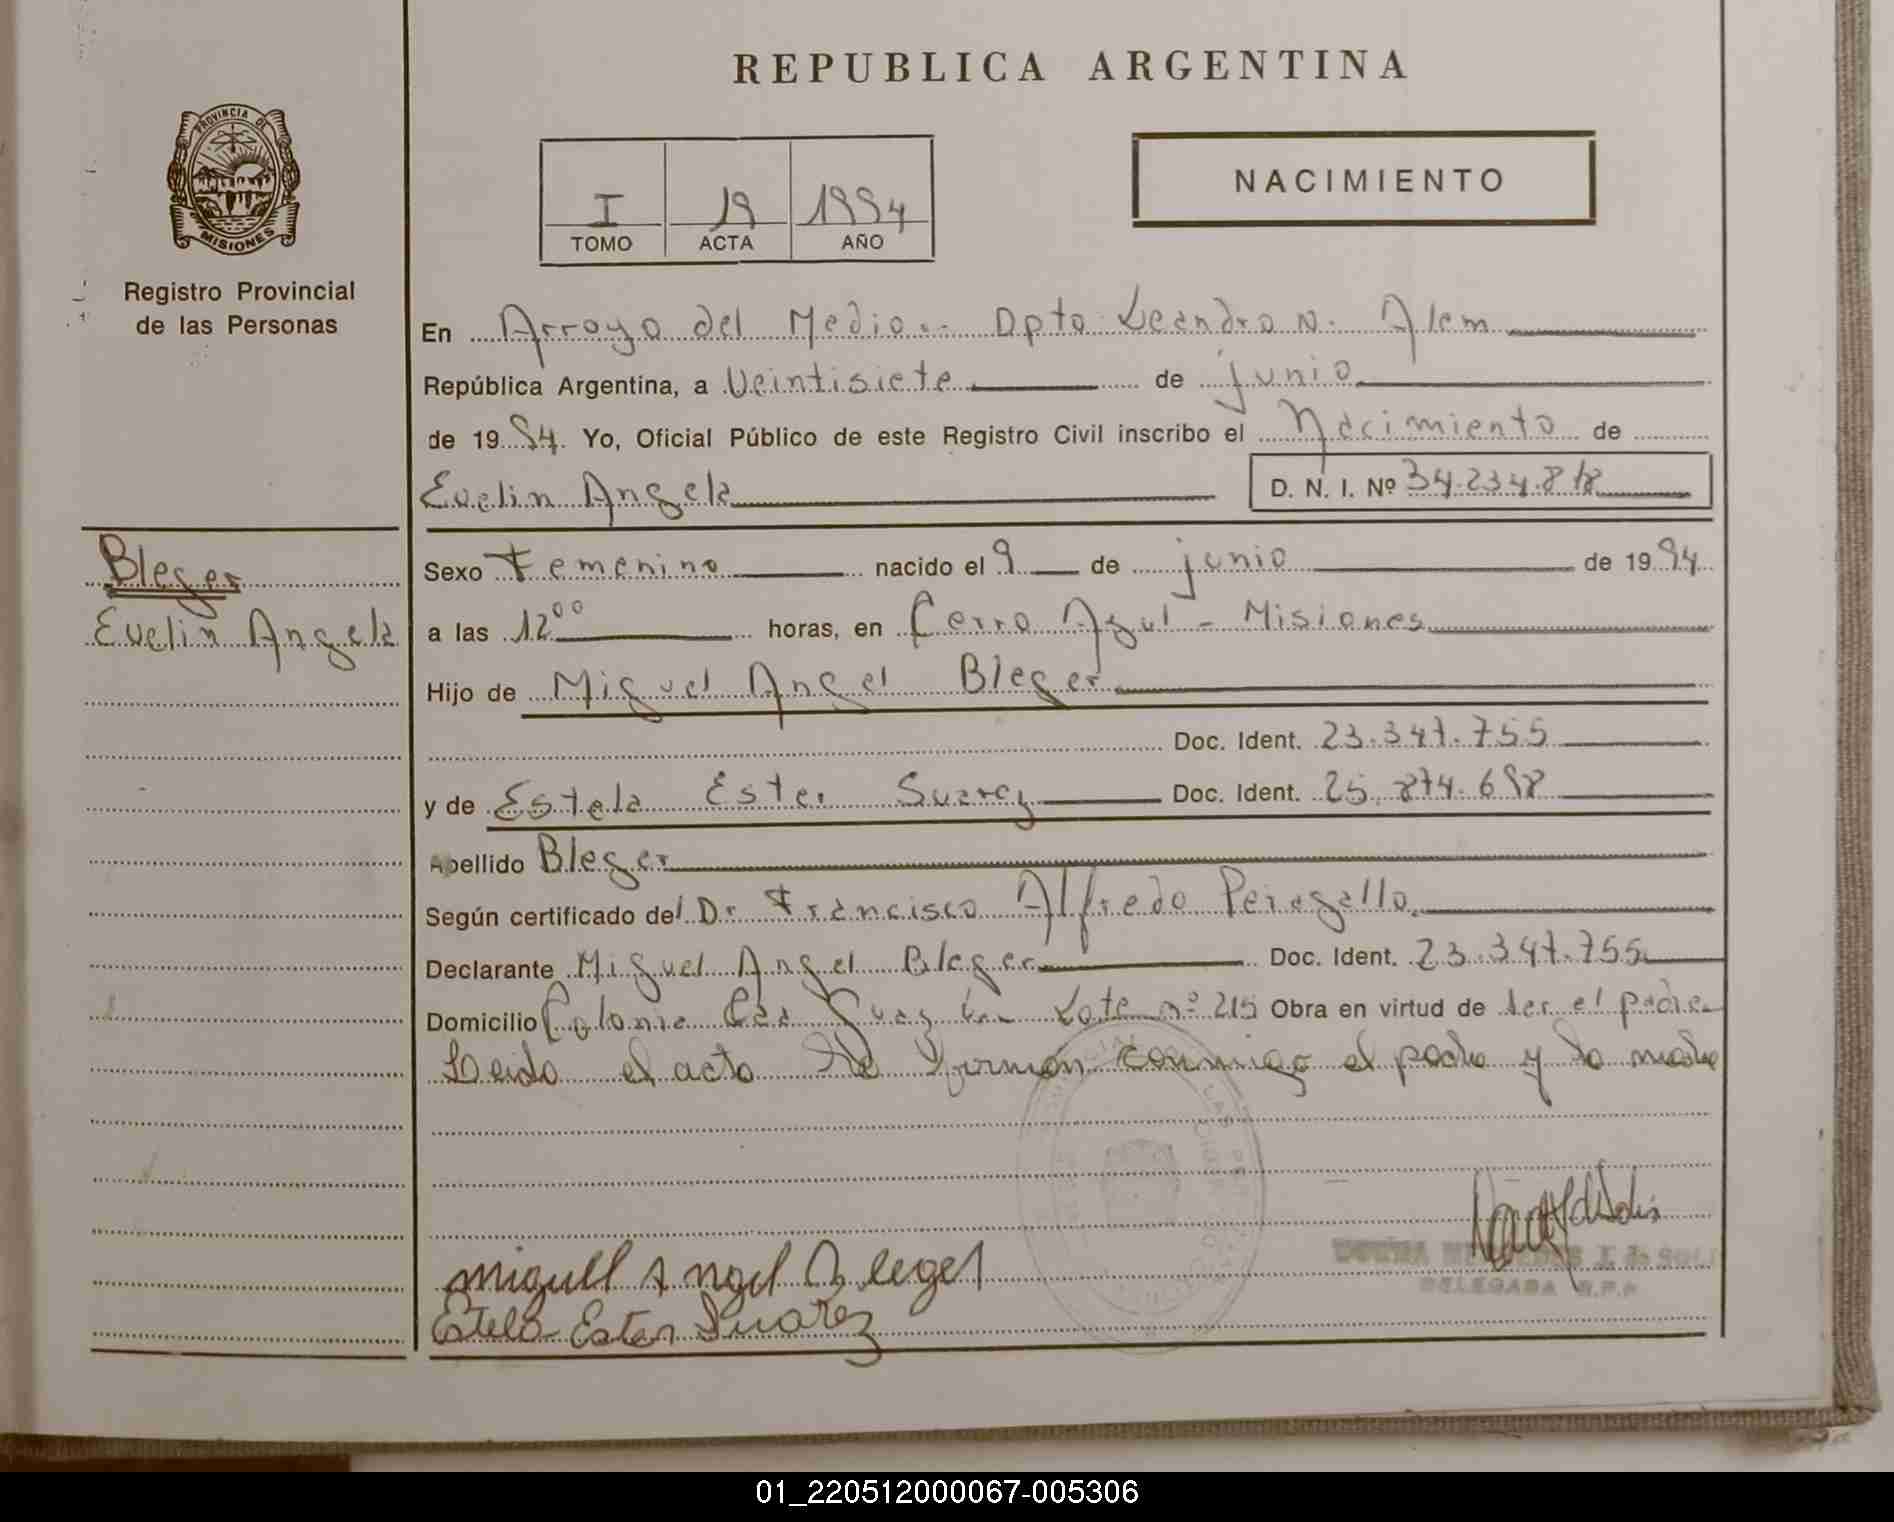 REPUBLICA ARGENTINA
PROVINCIA DE
MISIONES
Registro Provincial
de las Personas
I 19 1994
TOMO ACTA AÑO
NACIMIENTO
En Arroyo del Medio.- Dpto Leandro N. Alem
República Argentina, a Veintisiete de junio
de 1994. Yo, Oficial Público de este Registro Civil inscribo el Nacimiento de
Evelin Angela D. N. I. Nº 34.234.818
Bleger
Evelin Angela
Sexo Femenino nacido el 9 de junio de 1994
a las 12⁰⁰ horas, en Cerro Azul - Misiones
Hijo de Miguel Angel Bleger
Doc. Ident. 23.347.755
y de Estela Ester Suarez Doc. Ident. 25.874.698
Apellido Bleger
Según certificado del Dr Francisco Alfredo Peragallo.
Declarante Miguel Angel Bleger Doc. Ident. 23.347.755
Domicilio Colonia Lote nº 215 Obra en virtud de ser el padre
Leida el acta firman conmigo el padre y la madre
miguell Angel Bleger
Estela Ester Suarez
DELEGADA R.P.P
01_220512000067-005306